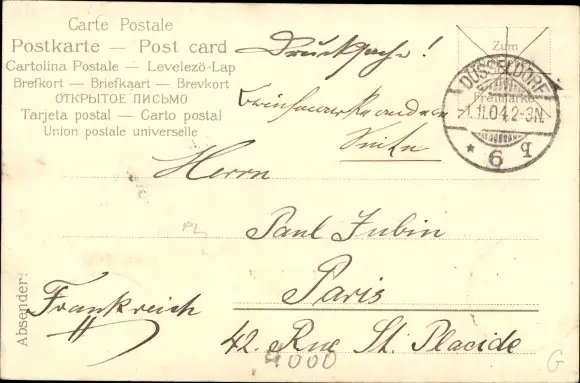 Carte Postale
Postkarte — Post card
Cartolina Postale — Levelező-Lap
Brefkort — Briefkaart — Brevkort
ОТКРЫТОЕ ПИСЬМО
Tarjeta postal — Carto postal
Union postale universelle
Drucksache!
Briefmarke andere
Seite
Zum
Freimarke
DÜSSELDORF
1.11.04.2-3N.
* 9 q
Herrn
PL
Paul Jubin
Paris
Absender:
Frankreich
42. Rue St. Placide
4000
G